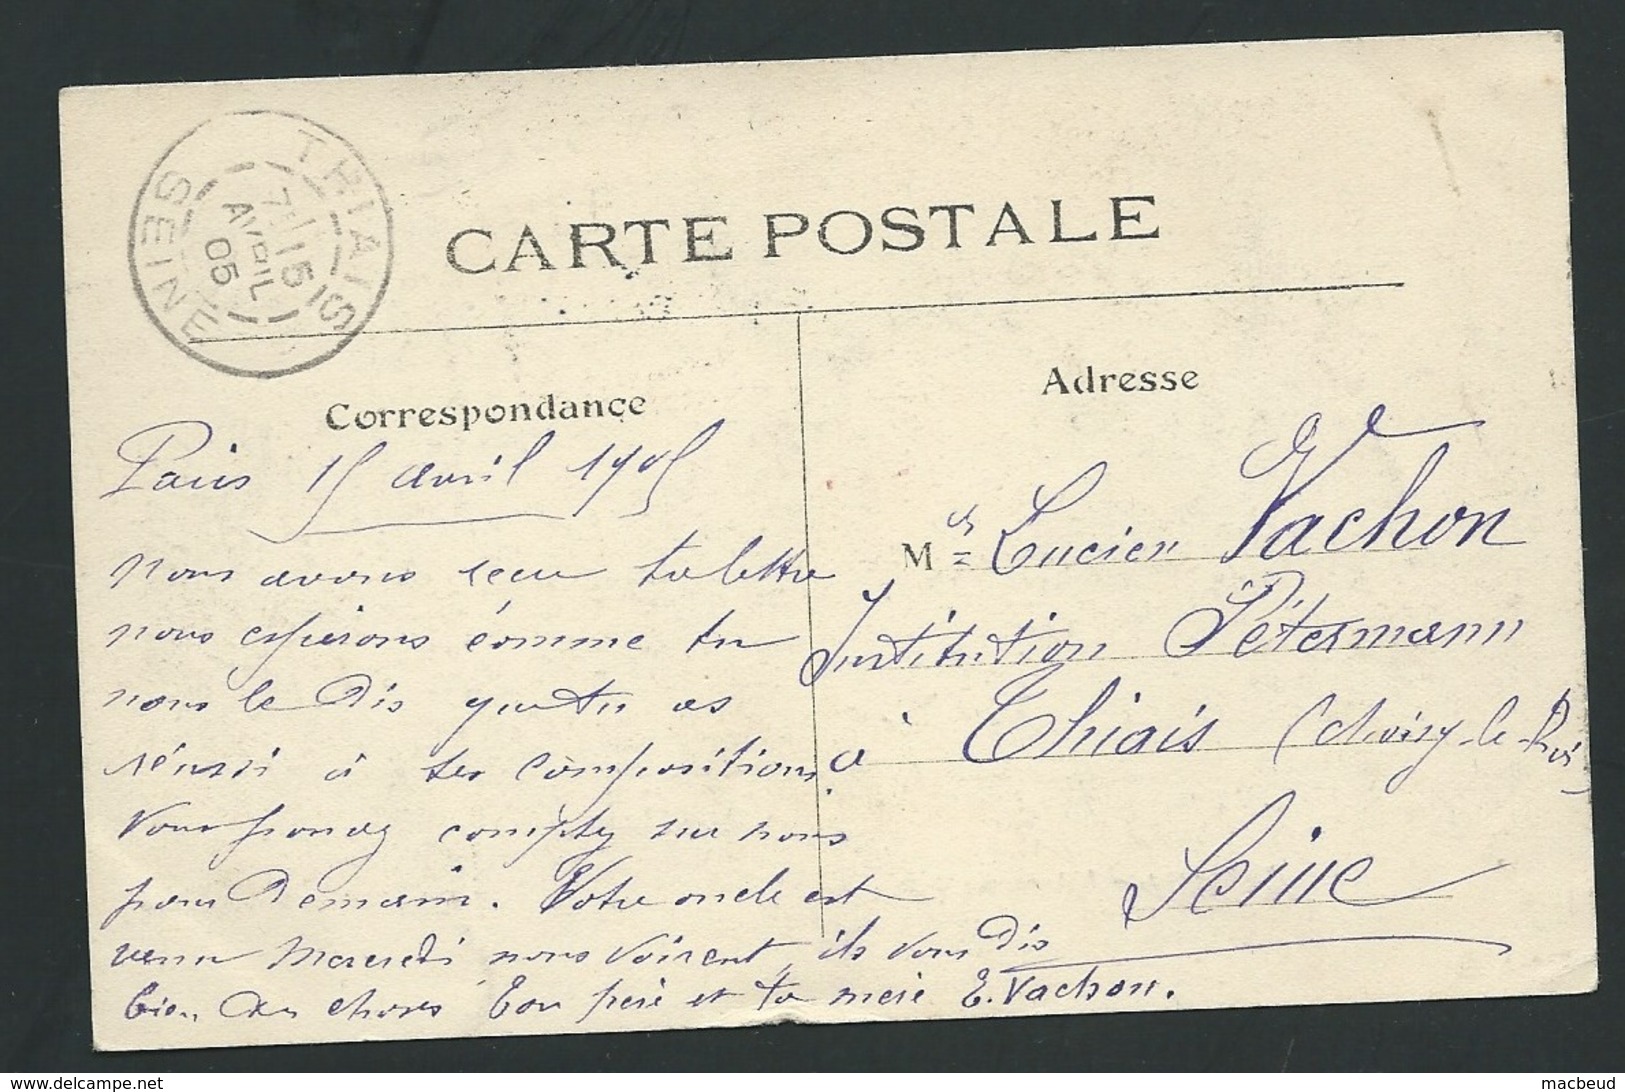 THIAIS
7 15
AVRIL
05
SEINE
CARTE POSTALE
Correspondance
Adresse
Paris 15 avril 1905
nous avons recu ta lettre
nous esperons comme tu
nous le dis que tu as
réussi à tes compositions
Vous pouvez compter sur nous
pour Demain. Votre oncle est
venu Mercredi nous voir et ils vous Dis
bien des choses Ton père et ta mère E. Vachon.
Mr Lucien Vachon
Institution Pétermann
à Thiais (choisy-le-Roi
Seine
macbeud